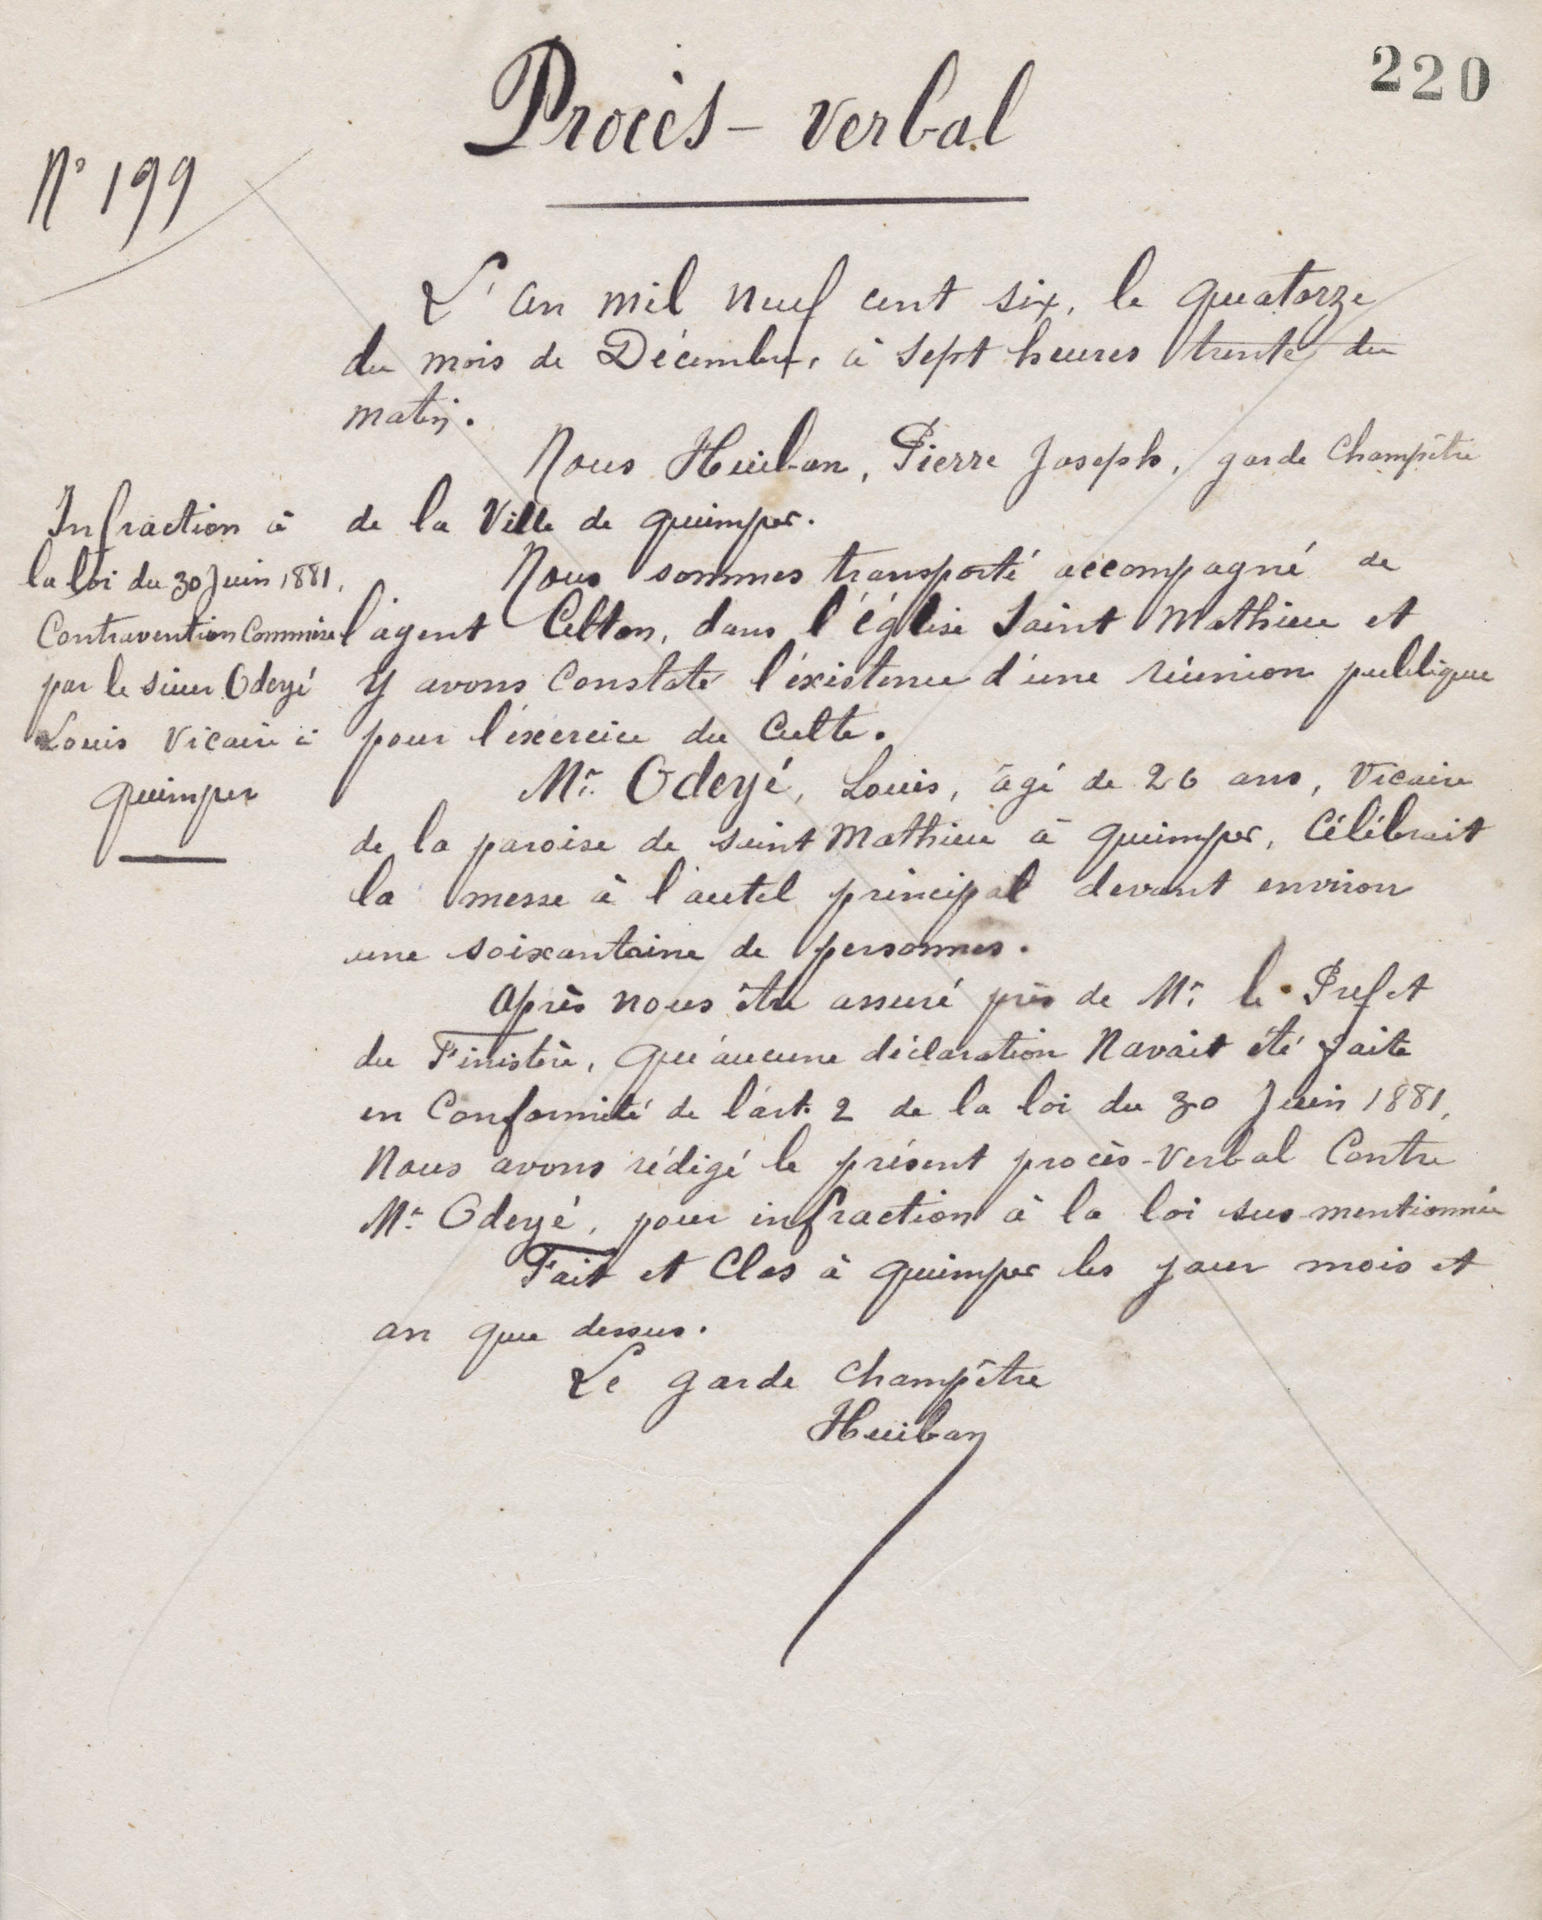 220
Procès-verbal
N° 199
L'an mil neuf cent six, le quatorze
du mois de Décembre, à sept heures trente du
matin.
Nous Huiban, Pierre Joseph, garde Champêtre
de la Ville de quimper.
Infraction à
la loi du 30 Juin 1881.
Contravention Commise
par le sieur Odeyé
Louis Vicaire à
quimper
Nous sommes transporté accompagné de
l'agent Celton, dans l'église Saint Mathieu et
y avons Constaté l'éxistence d'une réunion publique
pour l'éxercice du Culte.
Mr. Odeyé, Louis, âgé de 26 ans, Vicaire
de la paroise de saint Mathieu à quimper, Célébrait
la messe à l'autel principal devant environ
une soixantaine de personnes.
Après nous être assuré près de Mr. le Prefet
du Finistère, qu'aucune déclaration Navait été faite
en Conformité de l'art. 2 de la loi du 30 Juin 1881,
Nous avons rédigé le présent procès-verbal Contre
Mr. Odeyé, pour infraction à la loi sus-mentionnée
Fait et Clos à quimper les jour mois et
an que dessus.
Le garde Champêtre
Huiban